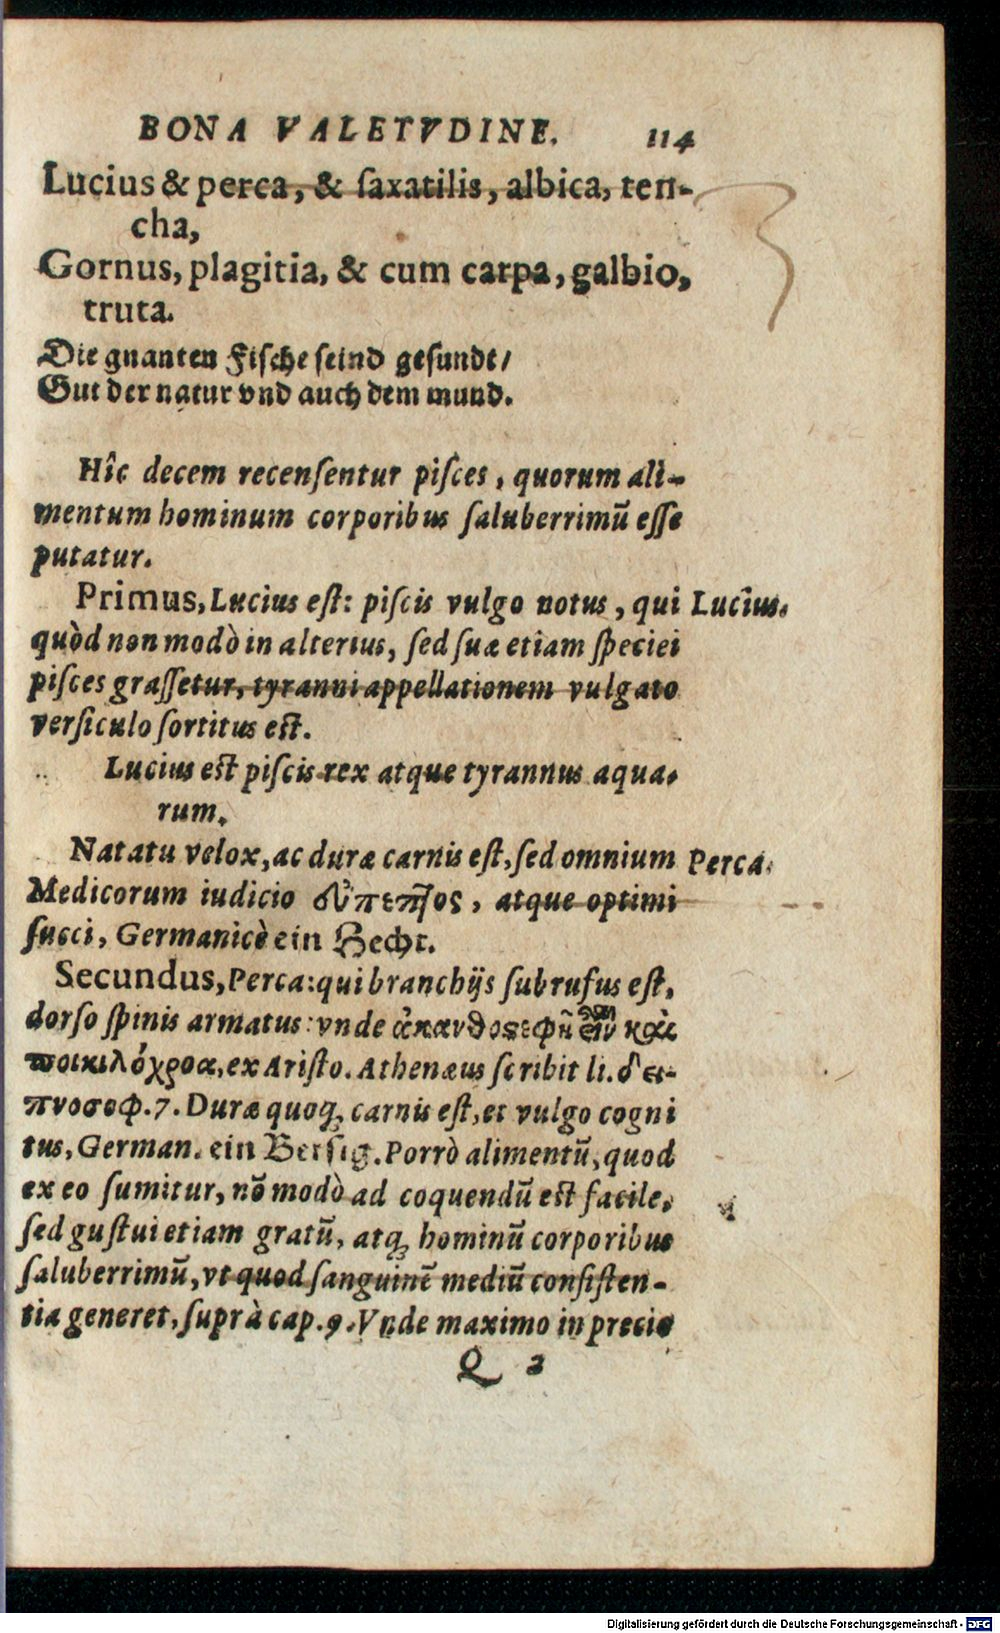 BONA VALETVDINE. 114
Lucius & perca, & saxatilis, albica, ten-
cha,
Gornus, plagitia, & cum carpa, galbio,
truta.
Die gnanten Fische seind gesundt/
Gut der natur vnd auch dem mund.
Hîc decem recensentur pisces, quorum ali-
mentum hominum corporibus saluberrimũ esse
putatur.
Primus, Lucius est: piscis vulgo notus, qui Lucius.
quòd non modò in alterius, sed suæ etiam speciei
pisces grassetur, tyranni appellationem vulgato
versiculo sortitus est.
Lucius est piscis rex atque tyrannus aqua-
rum.
Natatu velox, ac duræ carnis est, sed omnium Perca.
Medicorum iudicio εὔπεπτος, atque optimi
succi, Germanicè ein Hecht.
Secundus, Perca: qui branchijs subrufus est,
dorso spinis armatus: vnde καὶ
ποικιλόχροα, ex Aristo. Athenæus scribit li. δει-
πνοσοφ. 7. Duræ quoq; carnis est, et vulgo cogni
tus, German. ein Bersig. Porrò alimentũ, quod
ex eo sumitur, nõ modò ad coquendũ est facile,
sed gustui etiam gratũ, atq; hominũ corporibus
saluberrimũ, vt quod sanguinẽ mediũ consisten-
tia generet, suprà cap. 9. Vnde maximo in precio
Q 2
Digitalisierung gefördert durch die Deutsche Forschungsgemeinschaft - DFG